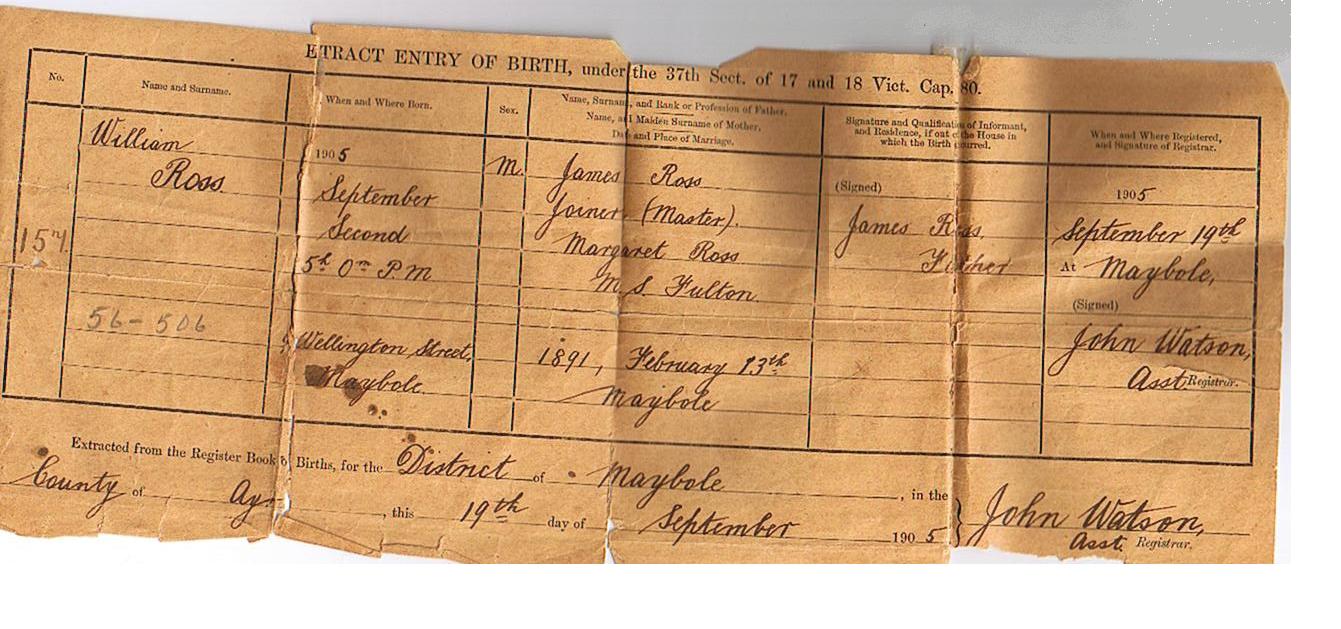 E TRACT ENTRY OF BIRTH, under the 37th Sect. of 17 and 18 Vict. Cap. 80.
No.
Name and Surname.
When and Where Born.
Sex.
Name, Surname, and Rank or Profession of Father.
Name, and Maiden Surname of Mother.
Date and Place of Marriage.
Signature and Qualification of Informant,
and Residence, if out of the House in
which the Birth occurred.
When and Where Registered,
and Signature of Registrar.
William
Ross
56-506
1905
September
Second
5h 0m P M
Wellington Street,
Maybole
M.
James Ross
Joiner (Master).
Margaret Ross
M. S. Fulton
1891, February 13th
Maybole
(Signed)
James Ross.
Father
1905
September 19th
At Maybole,
(Signed)
John Watson,
Asst Registrar.
Extracted from the Register Book of Births, for the District of Maybole, in the
County of Ayr, this 19th day of September 1905
John Watson,
Asst. Registrar.